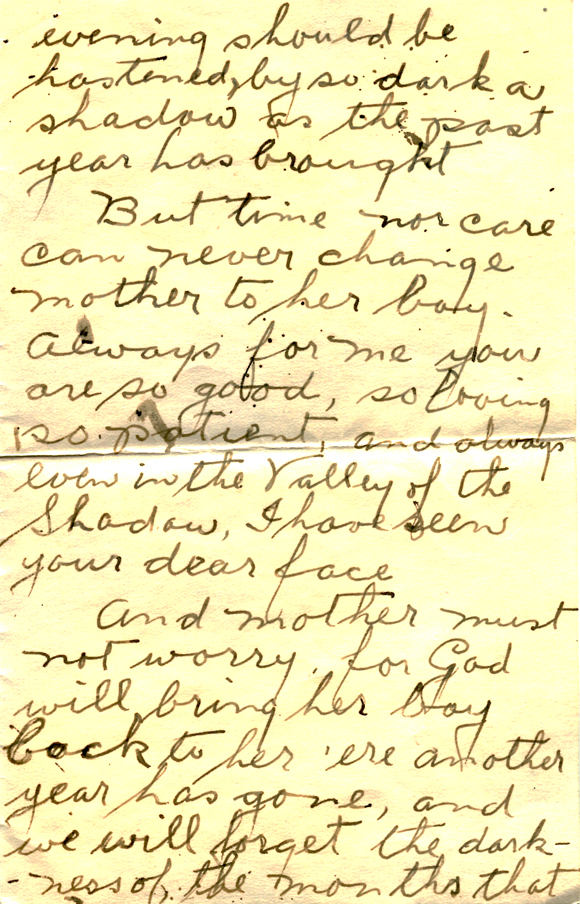 evening should be
hastened, by so dark a
shadow as the past
year has brought
But time nor care
can never change
mother to her boy.
Always for me you
are so good, so loving
so patient, and always
even in the Valley of the
Shadow, I have seen
your dear face
And mother must
not worry, for God
will bring her boy
back to her 'ere another
year has gone, and
we will forget the dark-
-ness of the months that